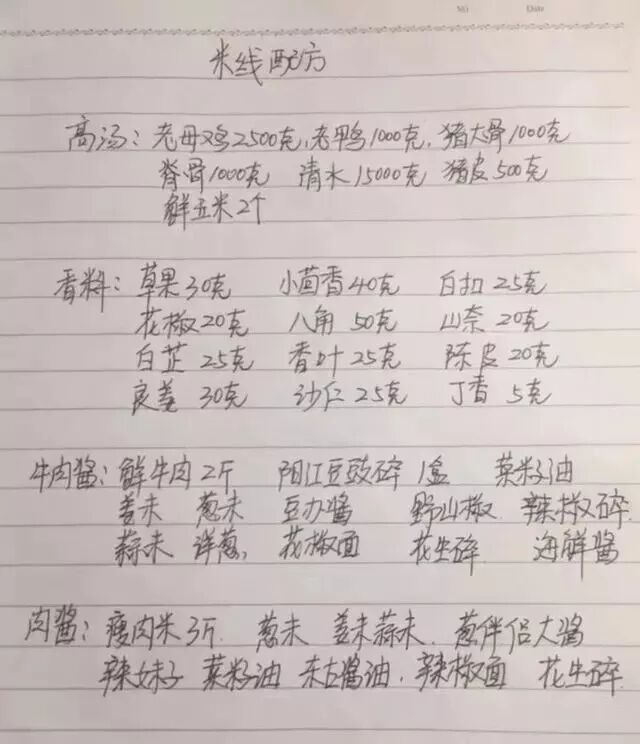 No Date
米线配方
高汤：老母鸡2500克，老鸭1000克，猪大骨1000克
脊骨1000克 清水15000克 猪皮500克
鲜玉米2个
香料：草果30克 小茴香40克 白扣25克
花椒20克 八角50克 山奈20克
白芷25克 香叶25克 陈皮20克
良姜30克 沙仁25克 丁香5克
牛肉酱：鲜牛肉2斤 阳江豆豉碎1盒 菜籽油
姜未 葱未 豆办酱 野山椒 辣椒碎
蒜未 洋葱， 花椒面 花生碎 海鲜酱
肉酱：瘦肉米3斤 葱未 姜未蒜未、葱伴侣大酱
辣妹子 菜籽油 东古酱油，辣椒面 花生碎